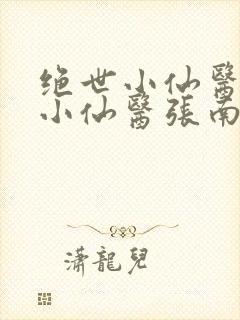 绝世小仙醫
小仙醫張南
瀟龍兒